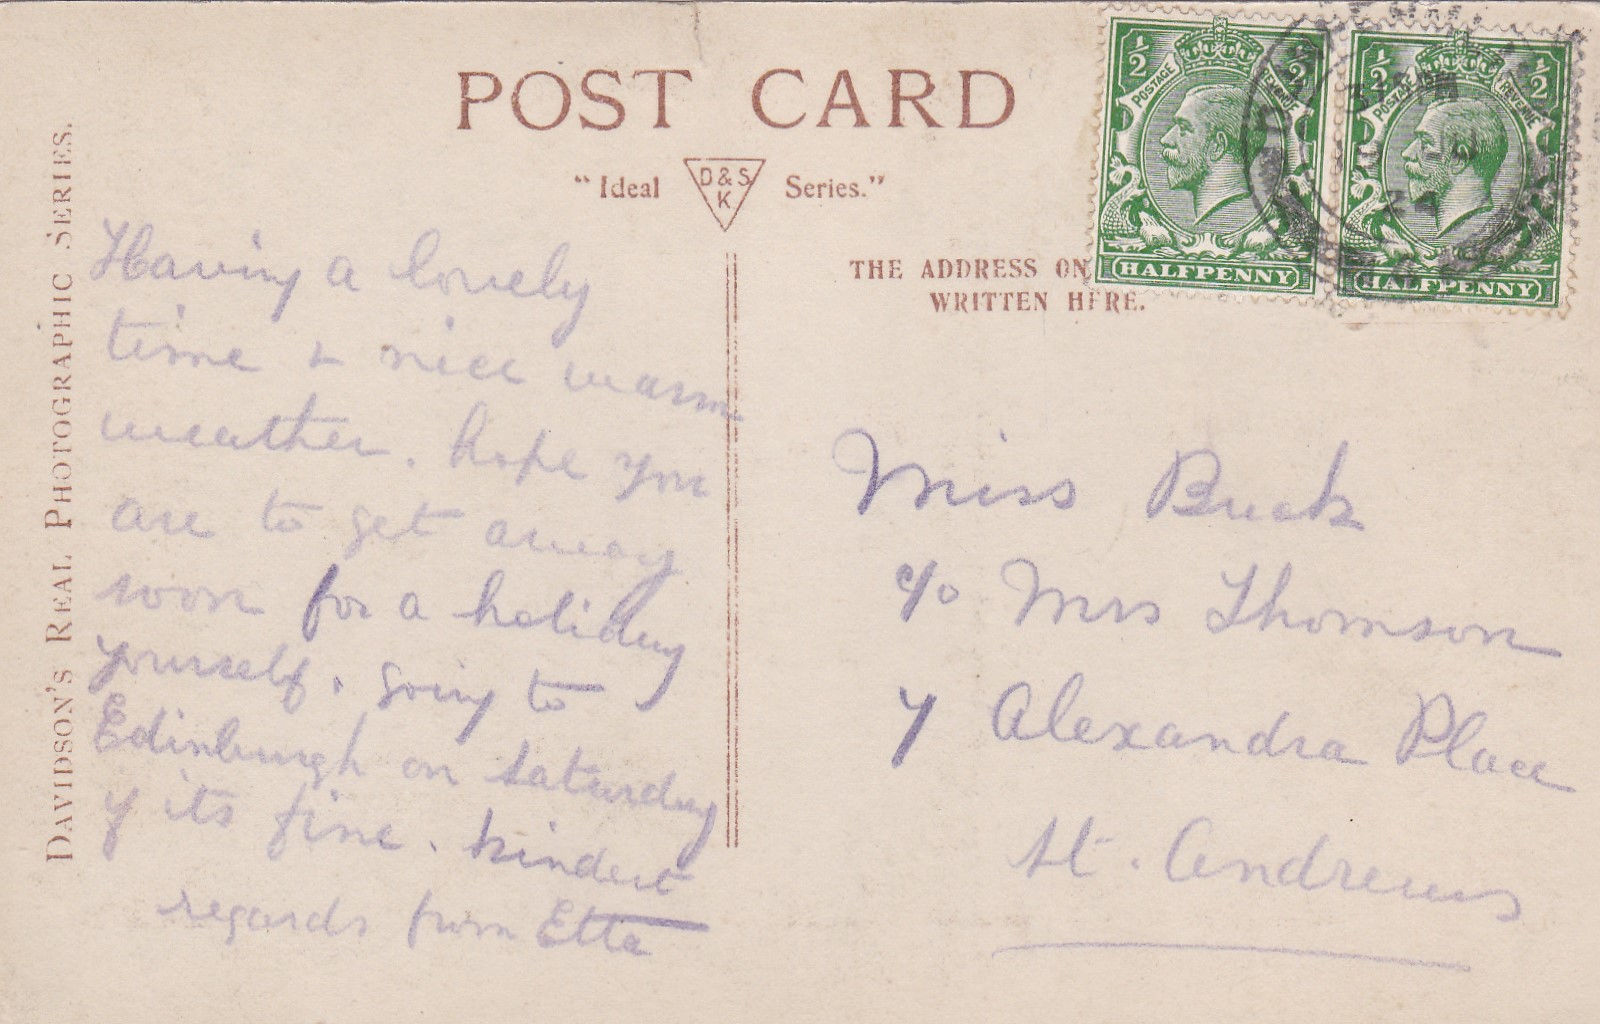 POST CARD
"Ideal
D & S
K
Series."
DAVIDSON'S REAL PHOTOGRAPHIC SERIES.
THE ADDRESS ON
WRITTEN HERE.
½
POSTAGE
REVENUE
½
HALFPENNY
½
POSTAGE
REVENUE
½
HALFPENNY
PM
24
Having a lovely
time & nice warm
weather. hope you
are to get away
soon for a holiday
yourself. going to
Edinburgh on Saturday
if its fine. kindest
regards from Etta
Miss Buck
c/o Mrs Thomson
7 Alexandra Place
St. Andrews